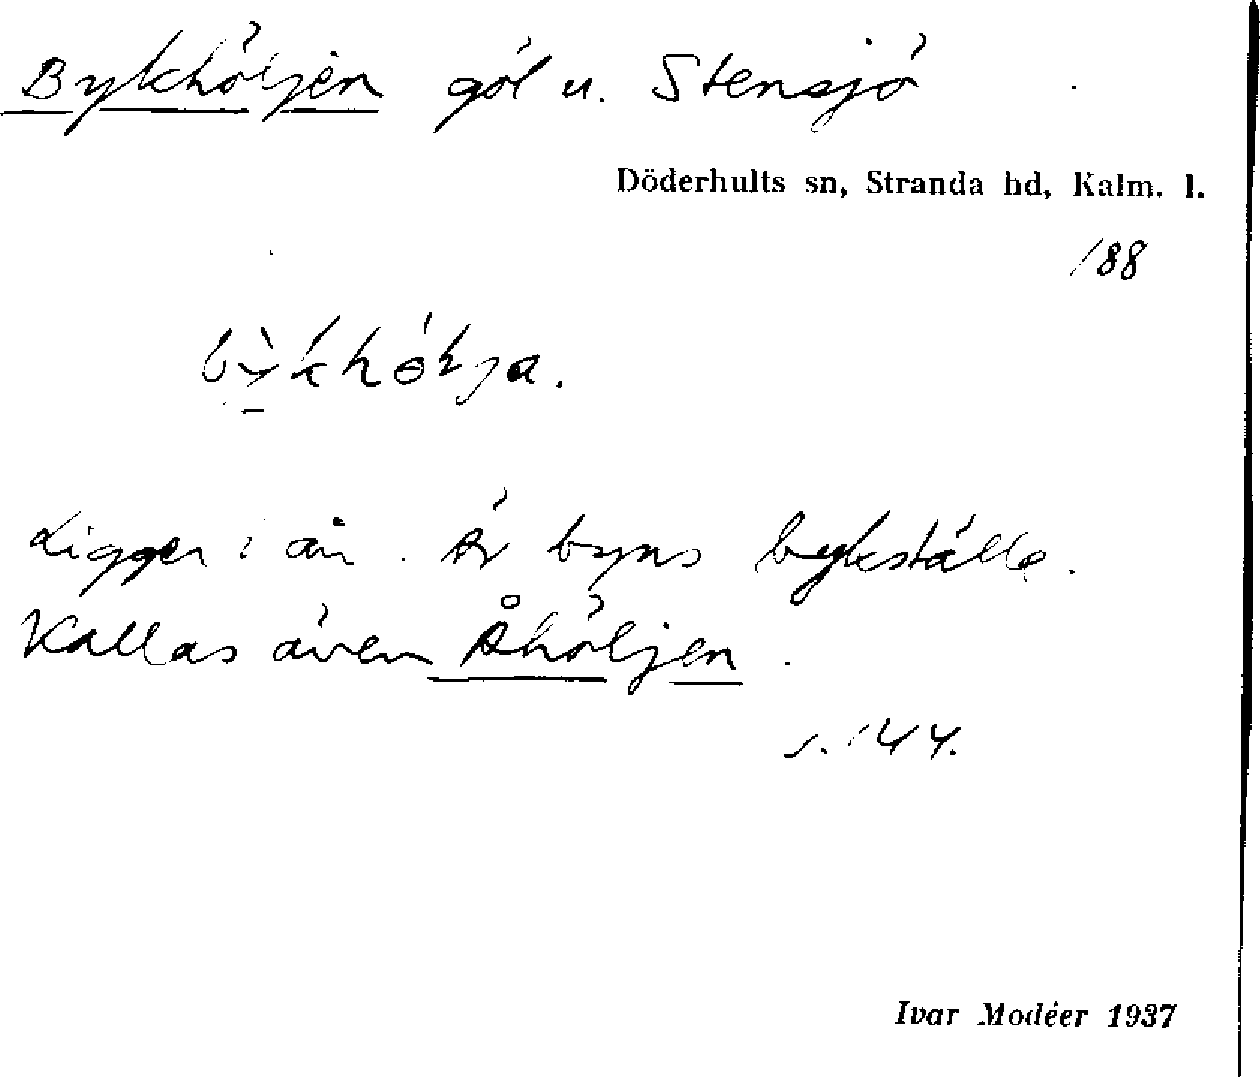 Bykhöljen göl u. Stensjö
Döderhults sn, Stranda hd, Kalm. l.
188
Ligger i ån. Är byns bykställe.
Kallas även Åhöljen.
s. 144.
Ivar Modéer 1937